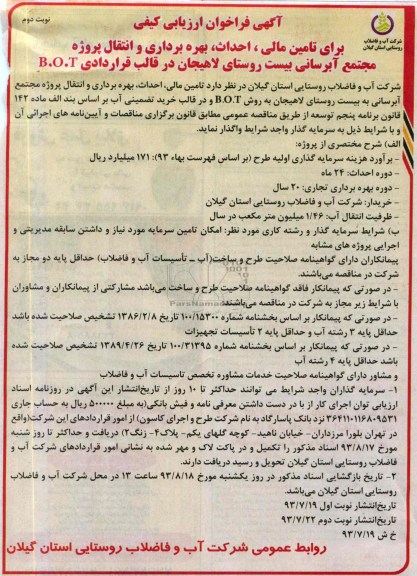 نوبت دوم
آگهی فراخوان ارزیابی کیفی
شرکت آب و فاضلاب
روستایی استان گیلان
برای تامین مالی ، احداث، بهره برداری و انتقال پروژه
مجتمع آبرسانی بیست روستای لاهیجان در قالب قراردادی B.O.T
شرکت آب و فاضلاب روستایی استان گیلان در نظر دارد تامین مالی، احداث، بهره برداری و انتقال پروژه مجتمع
آبرسانی به بیست روستای لاهیجان به روش B.O.T و در قالب خرید تضمینی آب بر اساس بند الف ماده ۱۴۲
قانون برنامه پنجم توسعه از طریق مناقصه عمومی مطابق قانون برگزاری مناقصات و آیین‌نامه های اجرائی آن
و با شرایط ذیل به سرمایه گذار واجد شرایط واگذار نماید.
الف) شرح مختصری از پروژه:
- برآورد هزینه سرمایه گذاری اولیه طرح (بر اساس فهرست بهاء ۹۳): ۱۷۱ میلیارد ریال
- دوره احداث: ۲۴ ماه
- دوره بهره برداری تجاری: ۲۰ سال
- خریدار: شرکت آب و فاضلاب روستایی استان گیلان
- ظرفیت انتقال آب: ۱/۴۶ میلیون متر مکعب در سال
ب) شرایط سرمایه گذار و رشته کاری مورد نظر: امکان تامین سرمایه مورد نیاز و داشتن سابقه مدیریتی و
اجرایی پروژه های مشابه
پیمانکاران دارای گواهینامه صلاحیت طرح و ساخت(آب ــ تأسیسات آب و فاضلاب) حداقل پایه دو مجاز به
شرکت در مناقصه می‌باشند.
- در صورتی که پیمانکار فاقد گواهینامه صلاحیت طرح و ساخت می‌باشد مشارکتی از پیمانکاران و مشاوران
با شرایط زیر مجاز به شرکت در مناقصه می‌باشند:
- در صورتی که پیمانکار بر اساس بخشنامه شماره ۱۰۰/۱۵۳۰۰ تاریخ ۱۳۸۶/۲/۸ تشخیص صلاحیت شده باشد
حداقل پایه ۳ رشته آب و حداقل پایه ۲ تأسیسات تجهیزات
- در صورتی که پیمانکار بر اساس بخشنامه شماره ۱۰۰/۳۱۳۹۵ تاریخ ۱۳۸۹/۴/۲۶ تشخیص صلاحیت شده
باشد حداقل پایه ۴ رشته آب
و مشاور دارای گواهینامه صلاحیت خدمات مشاوره تخصص تاسیسات آب و فاضلاب
۱- سرمایه گذاران واجد شرایط می توانند حداکثر تا ۱۰ روز از تاریخ‌انتشار این آگهی در روزنامه اسناد
ارزیابی توان اجرای کار از با در دست داشتن معرفی نامه و فیش بانکی(به مبلغ ۵۰۰۰۰۰ ریال به حساب جاری
نزد بانک پاسارگاد به نام شرکت طرح و اجرای کاسون) از امور قراردادهای این شرکت(واقع
در تهران بلورا مرزداران- خیابان ناهید- کوچه گلهای یکم- پلاک۴- زنگ۲) دریافت و حداکثر تا روز شنبه
مورخ ۹۳/۸/۱۷ اسناد مذکور را تکمیل و در پاکت لاک و مهر شده به نشانی امور قراردادهای شرکت آب و
فاضلاب روستایی استان گیلان تحویل و رسید دریافت دارند.
۲- تاریخ بازگشایی اسناد مذکور در روز یکشنبه مورخ ۹۳/۸/۱۸ ساعت ۱۳ در محل شرکت آب و فاضلاب
روستایی استان گیلان می‌باشد.
تاریخ‌انتشار نوبت اول ۹۳/۷/۱۹
تاریخ‌انتشار نوبت دوم ۹۳/۷/۲۲
خ ش ۹۳/۷/۱۹
روابط عمومی شرکت آب و فاضلاب روستایی استان گیلان